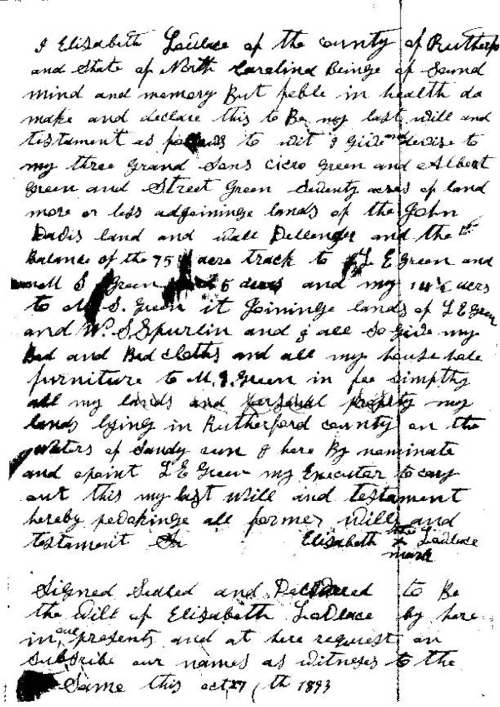 I Elisabeth Lovlace of the county of Rutherfo
and State of North Carolina Beinge of Sound
mind and memory But feble in health do
make and declare this to Be my last will and
testament as to wit I give and devise to
my three Grand Sons cicro Green and Albert
Green and Street Green Seventy acres of land
more or less adjoininge lands of the John
Davis land and Wall Dellenger and the
Balance of the 75 acre track to L E Green and
M S Green 5 acres and my acrs
to M. S. Green it Joininge lands of L E Green
and W. S. Spurlin and I all so give my
Bed and Bed cloths and all my house hole
furniture to M. S. Green in fee simpthy
all my lands and personal property my
lands lying in Rutherford county on the
waters of Sandy run I here By nominate
and apoint L E Green my Executer to cary
out this my last will and testament
hereby all former wills and
testament Elisabeth her x Lovlace
mark
Signed Sealed and Declared to Be
the will of Elisabeth Lovlace by here
in our presents and at here request an
Subscribe our names as witnesses to the
Same this oct 27 th 1893